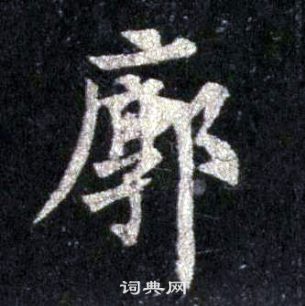 廓
词典网